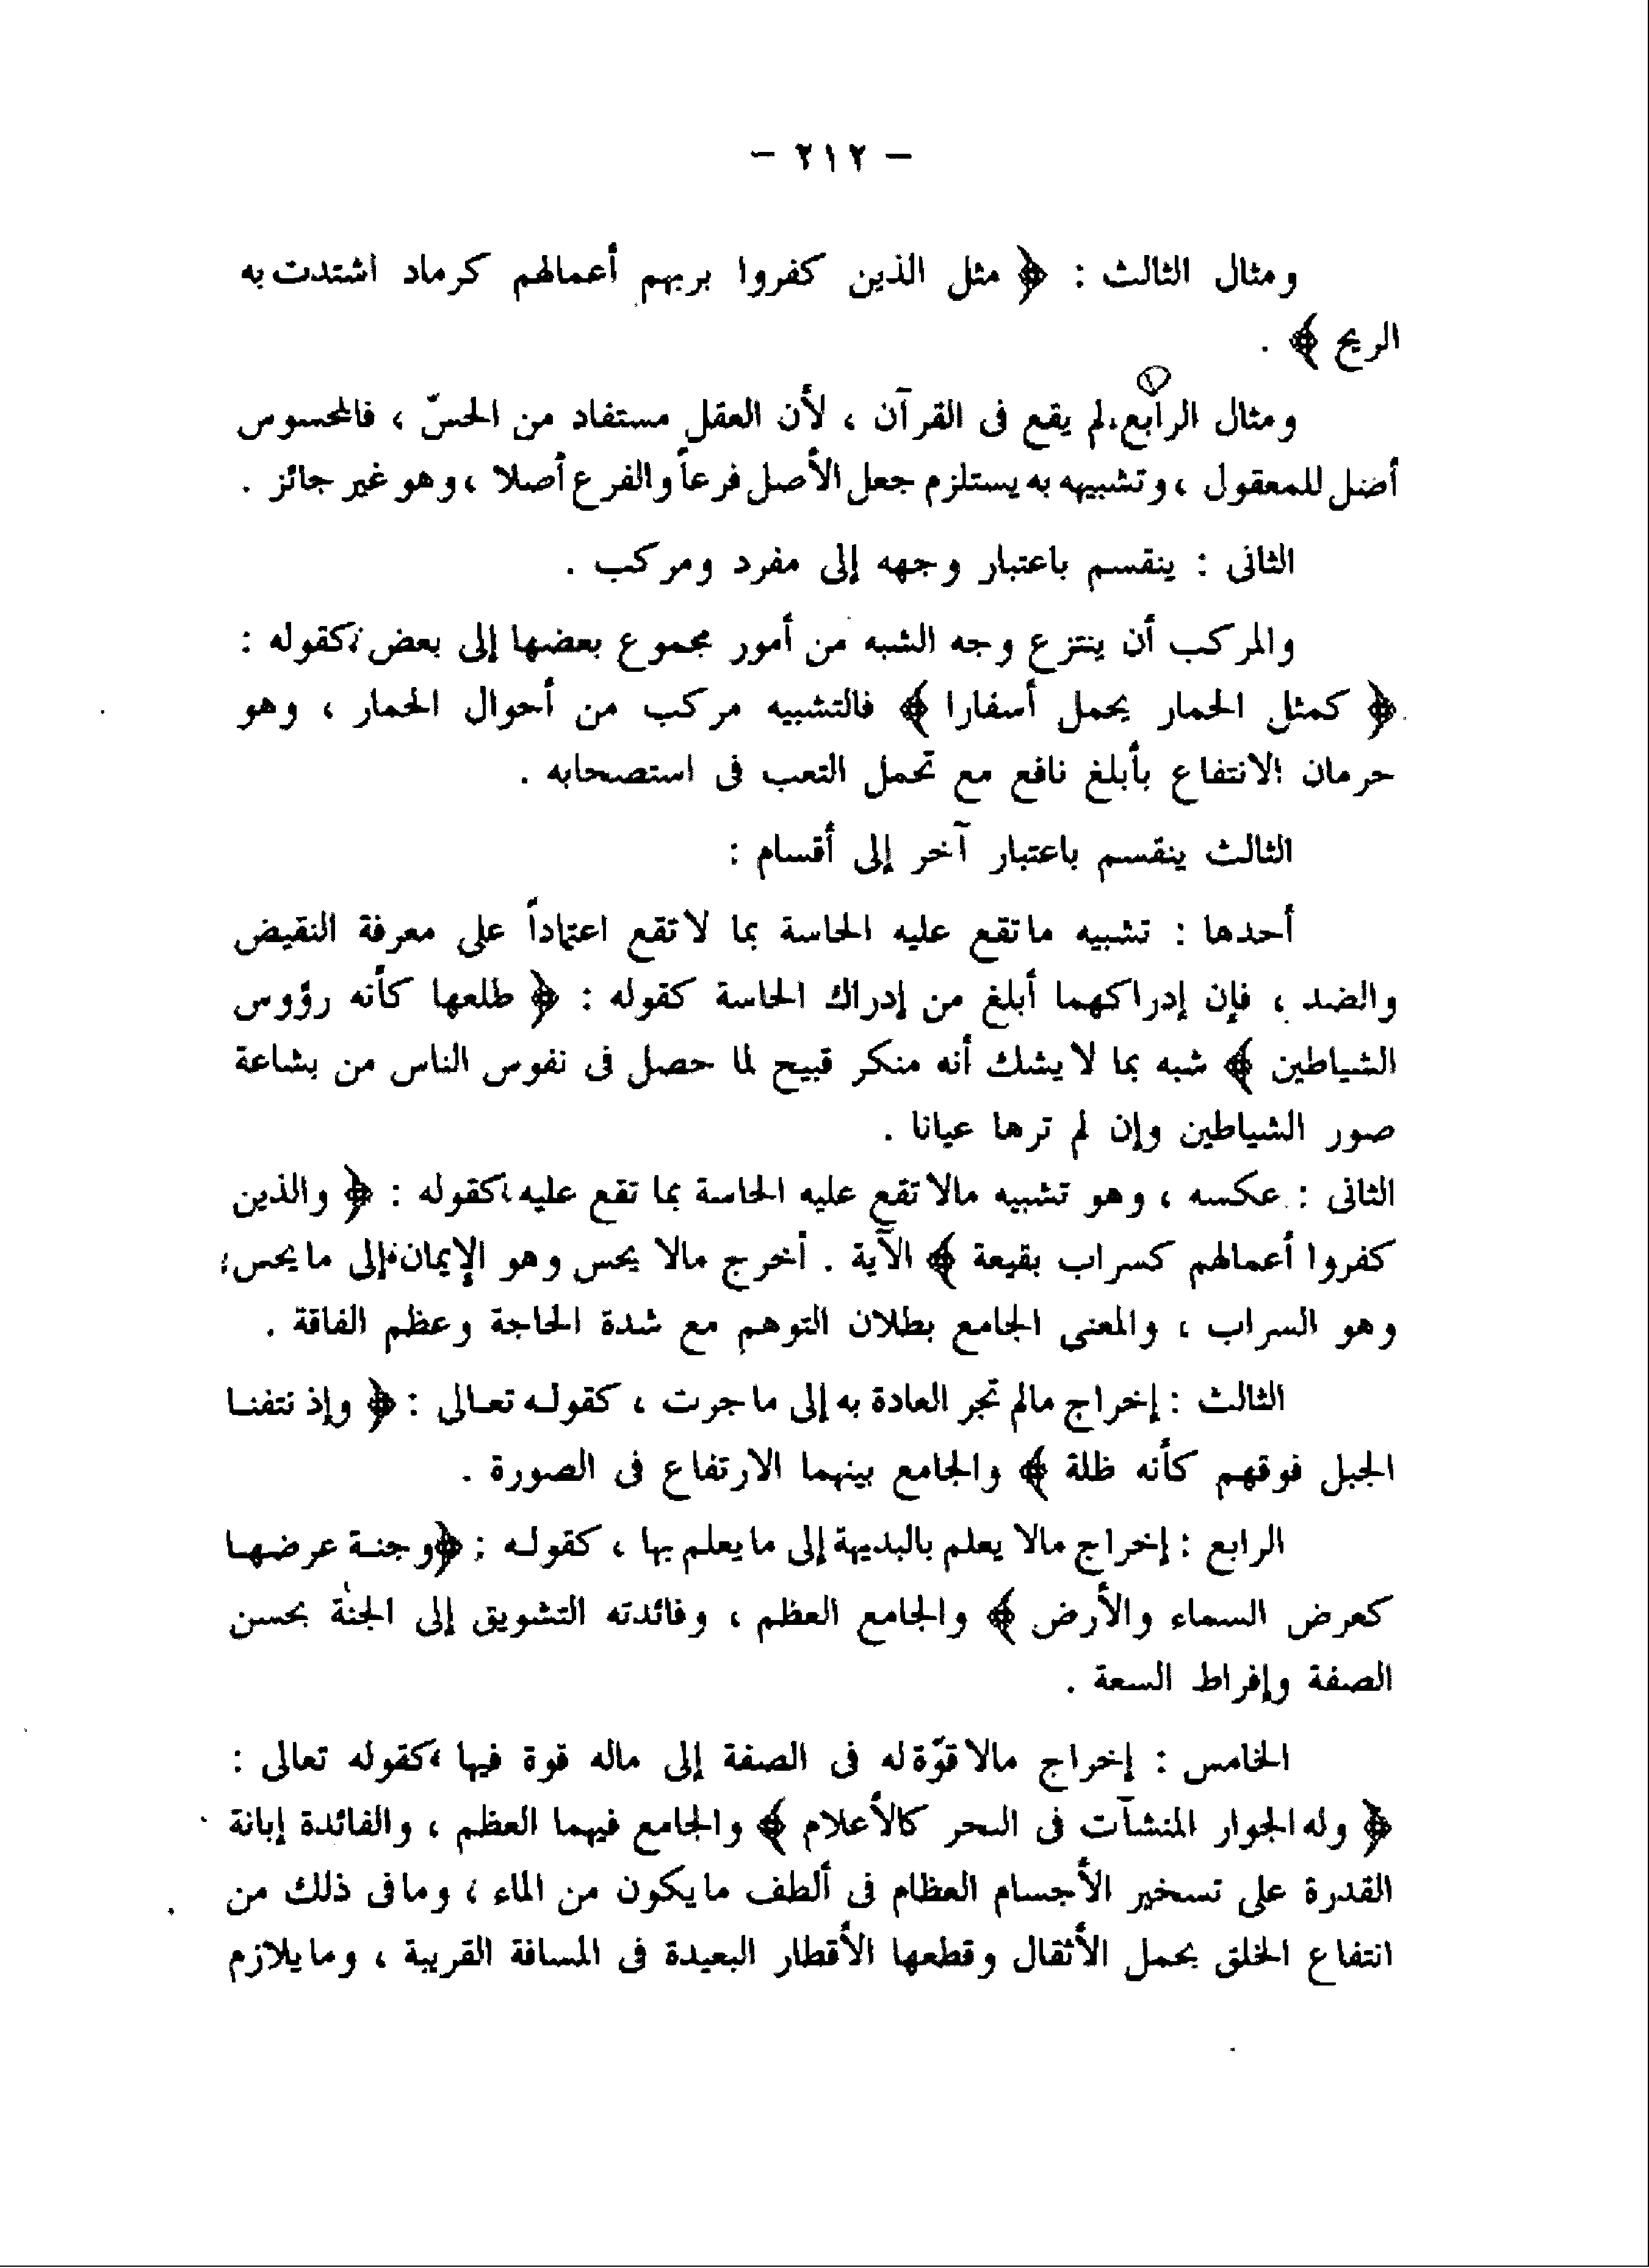 – ٢١٢ –
ومثال الثالث : ﴿ مثل الذين كفروا بربهم أعمالهم كرماد اشتدت به
الريح ﴾ .
ومثال الرابع لم يقع فى القرآن ، لأن العقل مستفاد من الحسّ ، فالمحسوس
أضل للمعقول ، وتشبيهه به يستلزم جعل الأصل فرعاً والفرع أصلا ، وهو غير جائز .
الثانى : ينقسم باعتبار وجهه إلى مفرد ومركب .
والمركب أن ينتزع وجه الشبه من أمور مجموع بعضها إلى بعض ، كقوله :
﴿ كمثل الحمار يحمل أسفارا ﴾ فالتشبيه مركب من أحوال الحمار ، وهو
حرمان الانتفاع بأبلغ نافع مع تحمل التعب فى استصحابه .
الثالث ينقسم باعتبار آخر إلى أقسام :
أحدها : تشبيه ما تقع عليه الحاسة بما لا تقع اعتماداً على معرفة النقيض
والضد ، فإن إدراكهما أبلغ من إدراك الحاسة كقوله : ﴿ طلعها كأنه رؤوس
الشياطين ﴾ شبه بما لا يشك أنه منكر قبيح لما حصل فى نفوس الناس من بشاعة
صور الشياطين وإن لم ترها عيانا .
الثانى : عكسه ، وهو تشبيه مالا تقع عليه الحاسة بما تقع عليه ، كقوله : ﴿ والذين
كفروا أعمالهم كسراب بقيعة ﴾ الآية . أخرج مالا يحس وهو الإيمان إلى ما يحس ؛
وهو السراب ، والمعنى الجامع بطلان التوهم مع شدة الحاجة وعظم الفاقة .
الثالث : إخراج مالم تجر العادة به إلى ما جرت ، كقوله تعالى : ﴿ وإذ نتفنا
الجبل فوقهم كأنه ظلة ﴾ والجامع بينهما الارتفاع فى الصورة .
الرابع : إخراج مالا يعلم بالبديهة إلى ما يعلم بها ، كقوله : ﴿ وجنة عرضها
كعرض السماء والأرض ﴾ والجامع العظم ، وفائدته التشويق إلى الجنة بحسن
الصفة وإفراط السعة .
الخامس : إخراج مالا قوّة له فى الصفة إلى ماله قوة فيها ، كقوله تعالى :
﴿ وله الجوار المنشآت فى البحر كالأعلام ﴾ والجامع فيهما العظم ، والفائدة إبانة
القدرة على تسخير الأجسام العظام فى ألطف ما يكون من الماء ، وما فى ذلك من
انتفاع الخلق بحمل الأثقال وقطعها الأقطار البعيدة فى المسافة القريبة ، وما يلازم